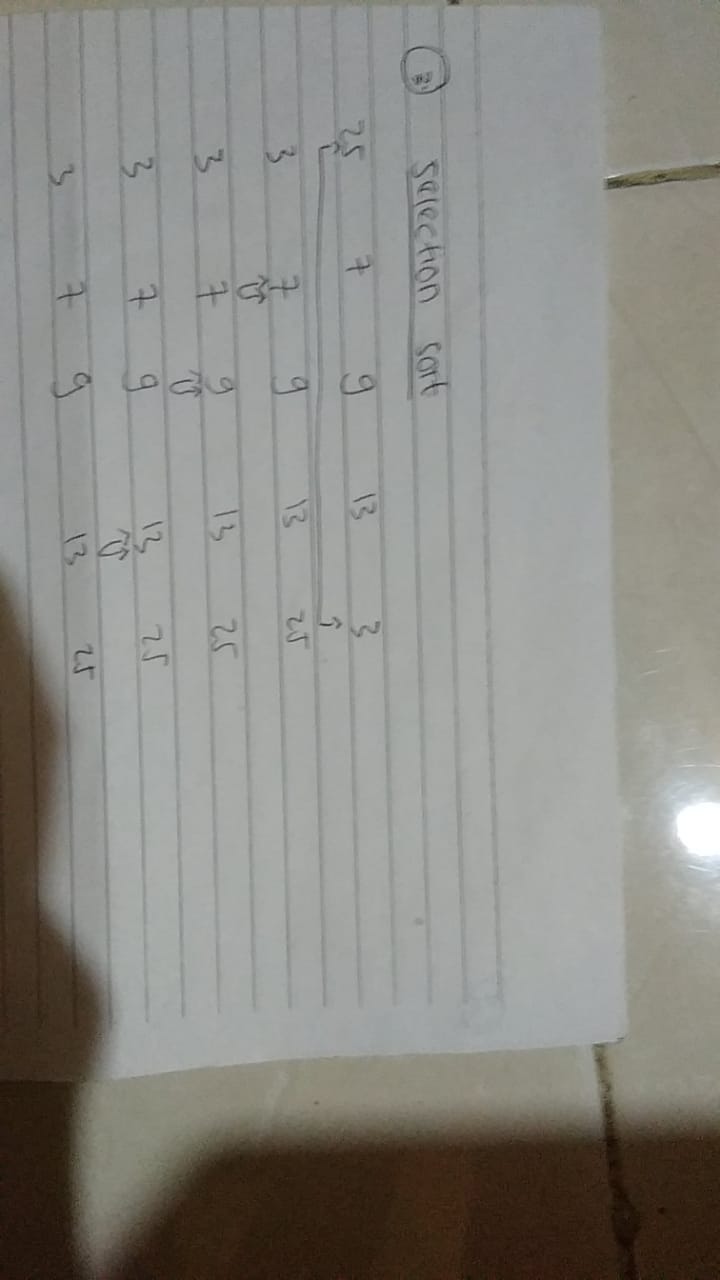 2. Selection Sort
25 7 9 13 3
3 7 9 13 25
3 7 9 13 25
3 7 9 13 25
3 7 9 13 25